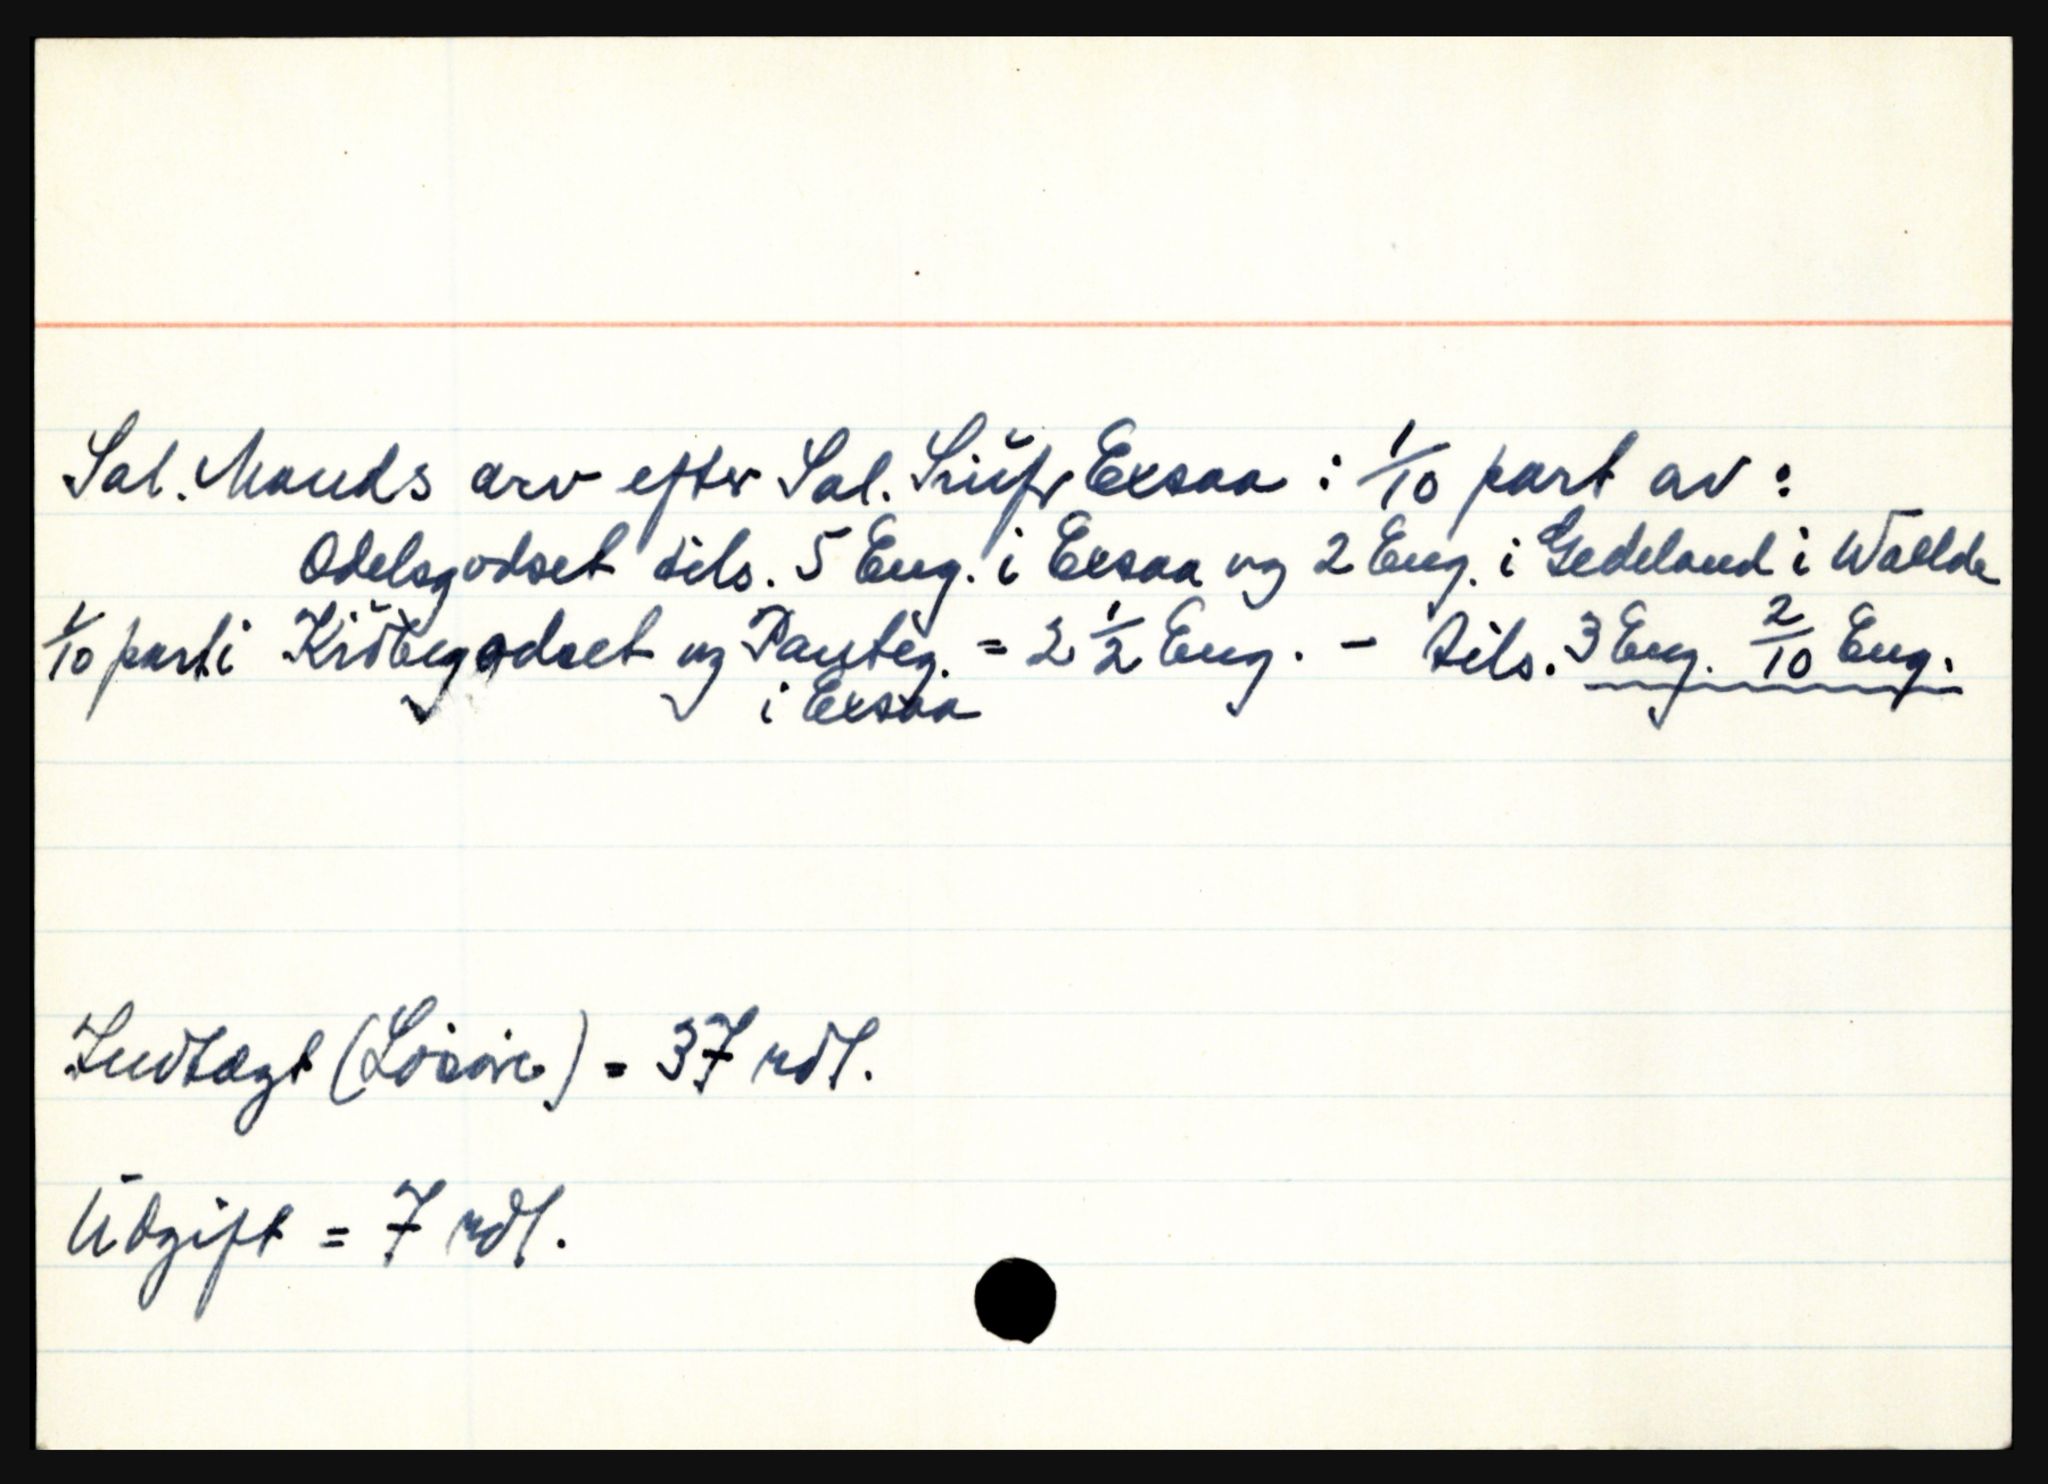 Sal. Mands arv efter Sal. Siufr Exsaa : 1/10 part av :
Odelsgodset tils. 5 Eng. i Exsaa og 2 Eng. i Gedeland i Walde
1/10 part i Kiöbegodset og Panteg. = 2 1/2 Eng. - tils. 3 Eng. 2/10 Eng.
i Exsaa
Indtægt (Lösöre) = 37 rdl.
Udgift = 7 rdl.